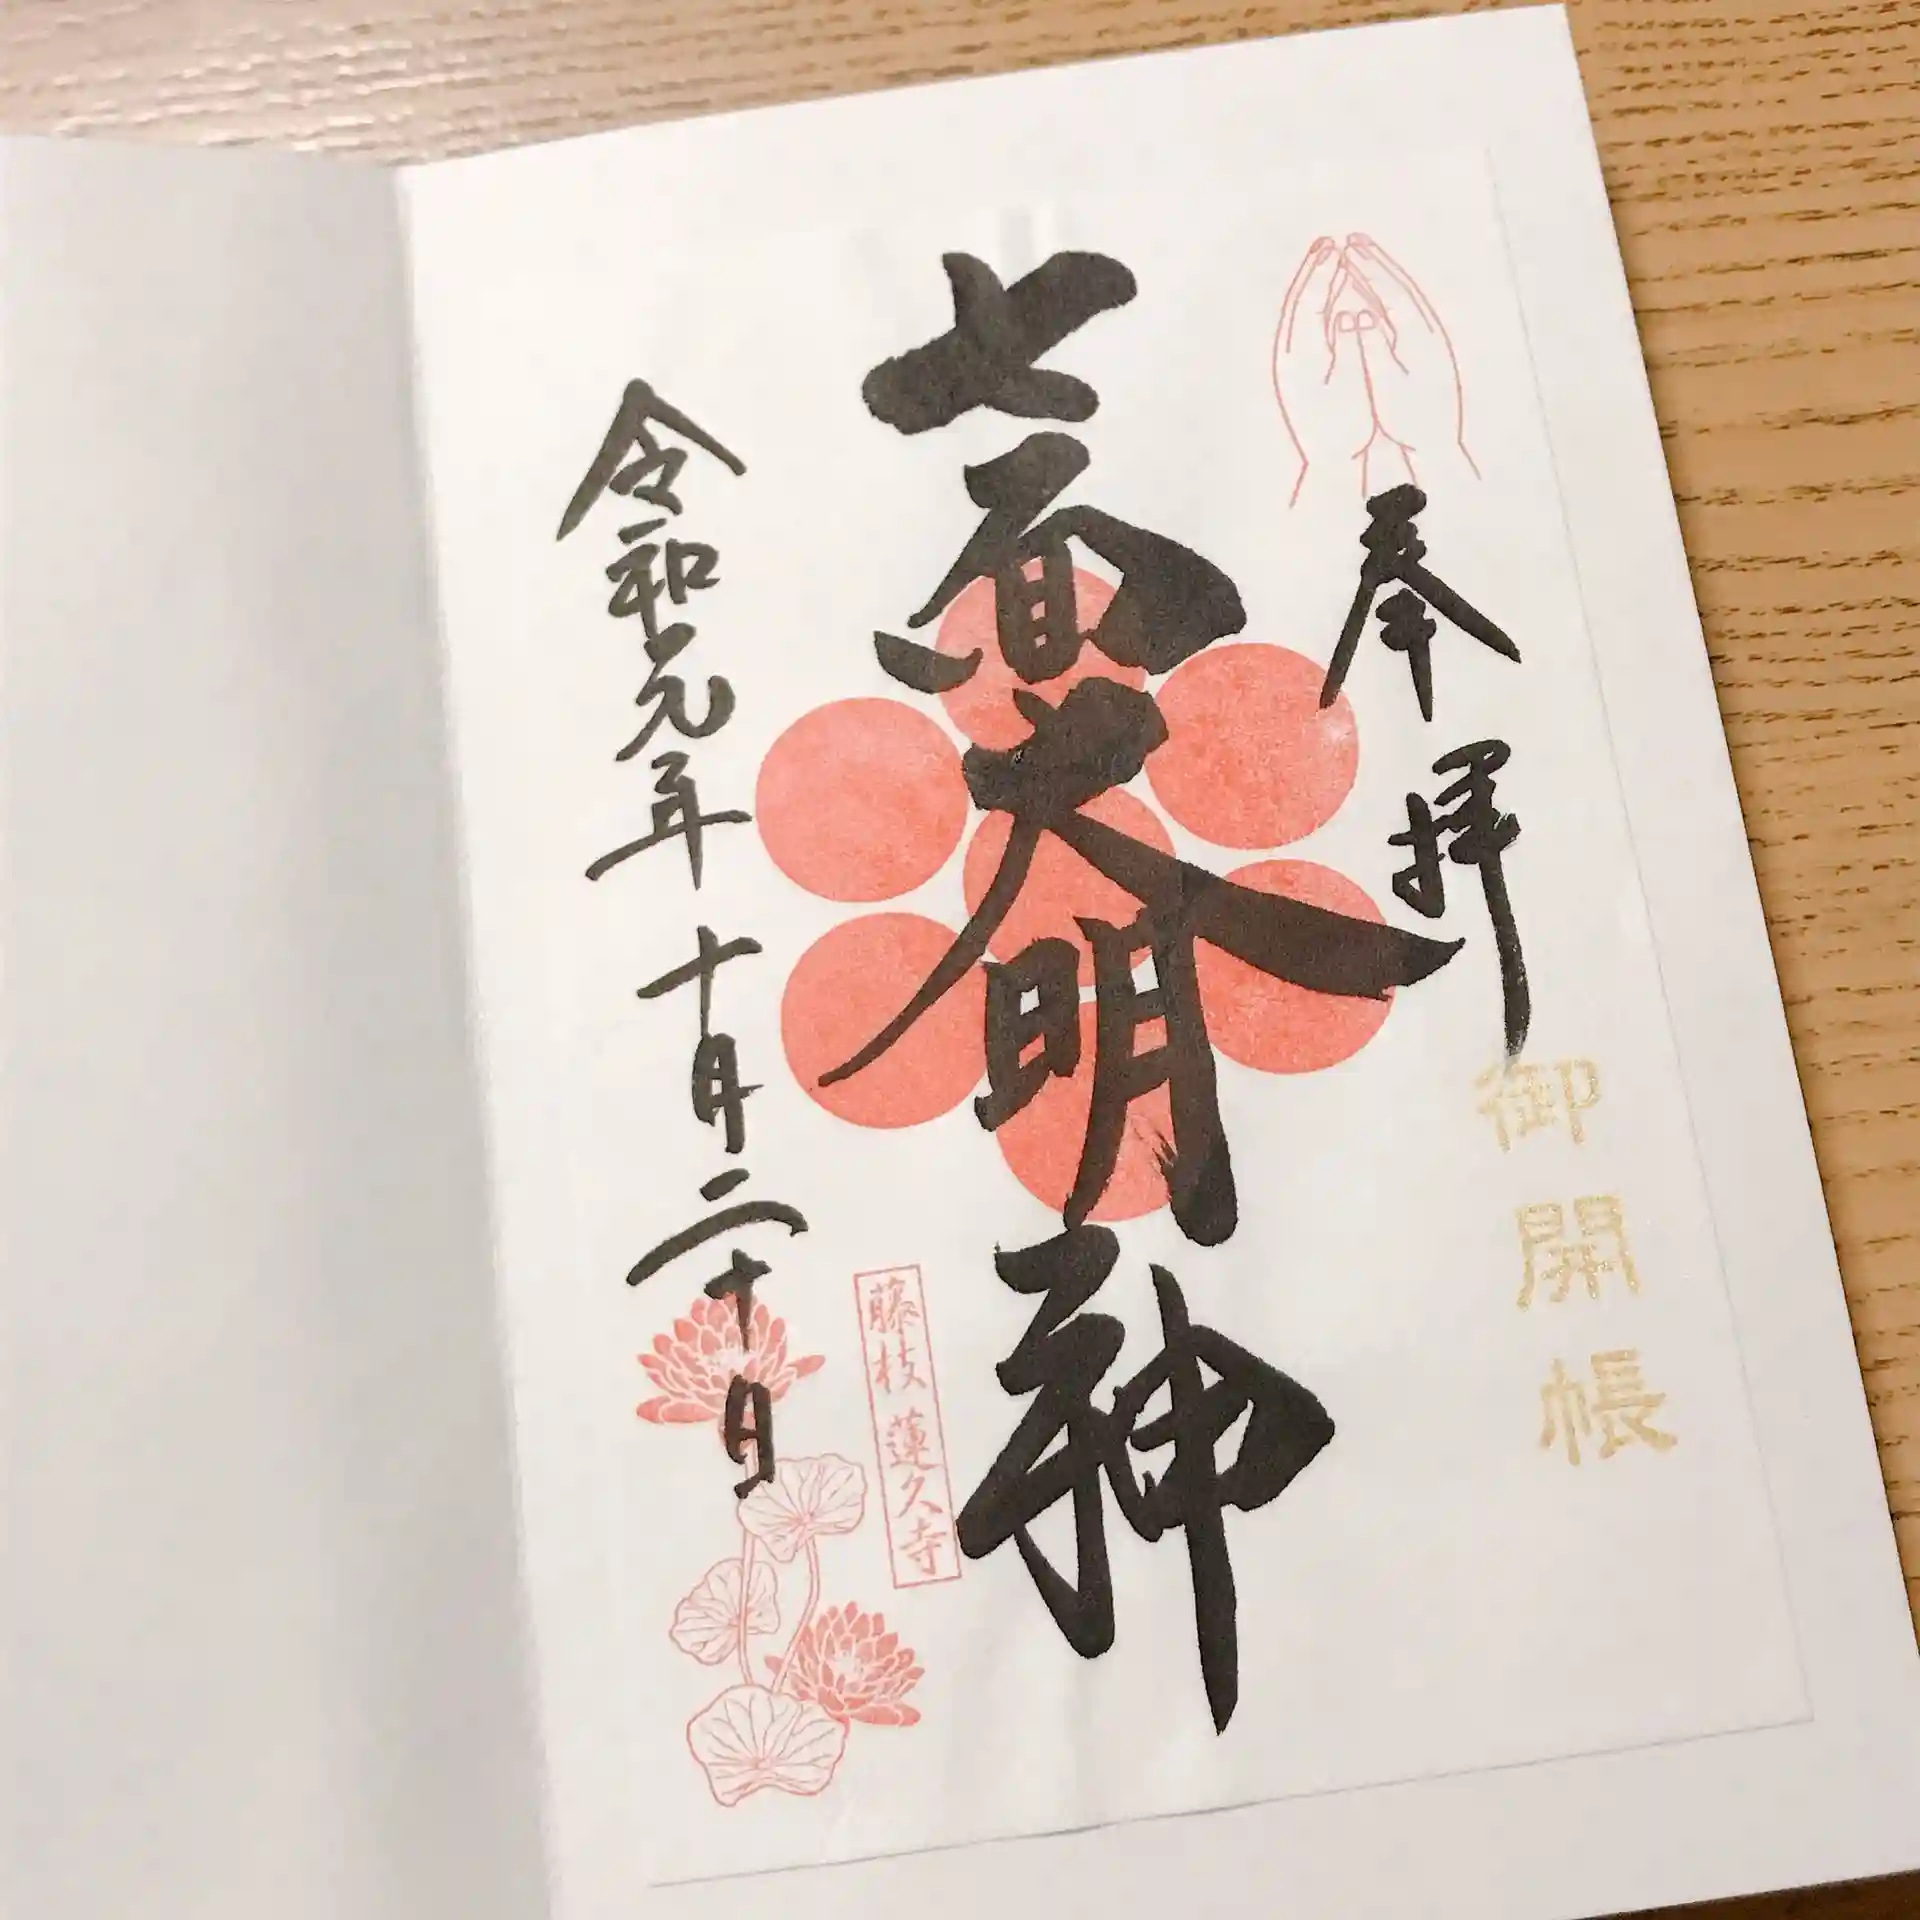 奉拝
御開帳
七面大明神
藤枝 蓮久寺
令和元年十月二十日